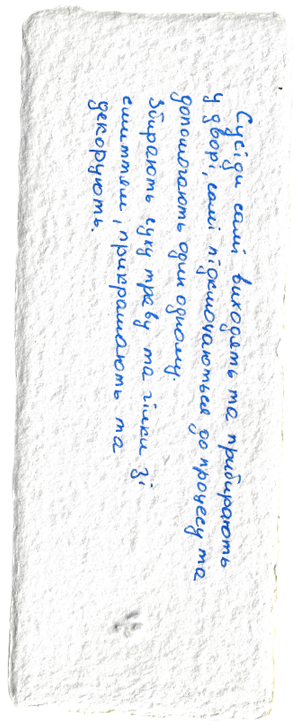 Сусіди самі виходять та прибирають
у дворі, самі підключаються до процесу та
допомагають один одному.
Збирають суху траву та гілки зі
сміттям, прикрашають та
декорують.